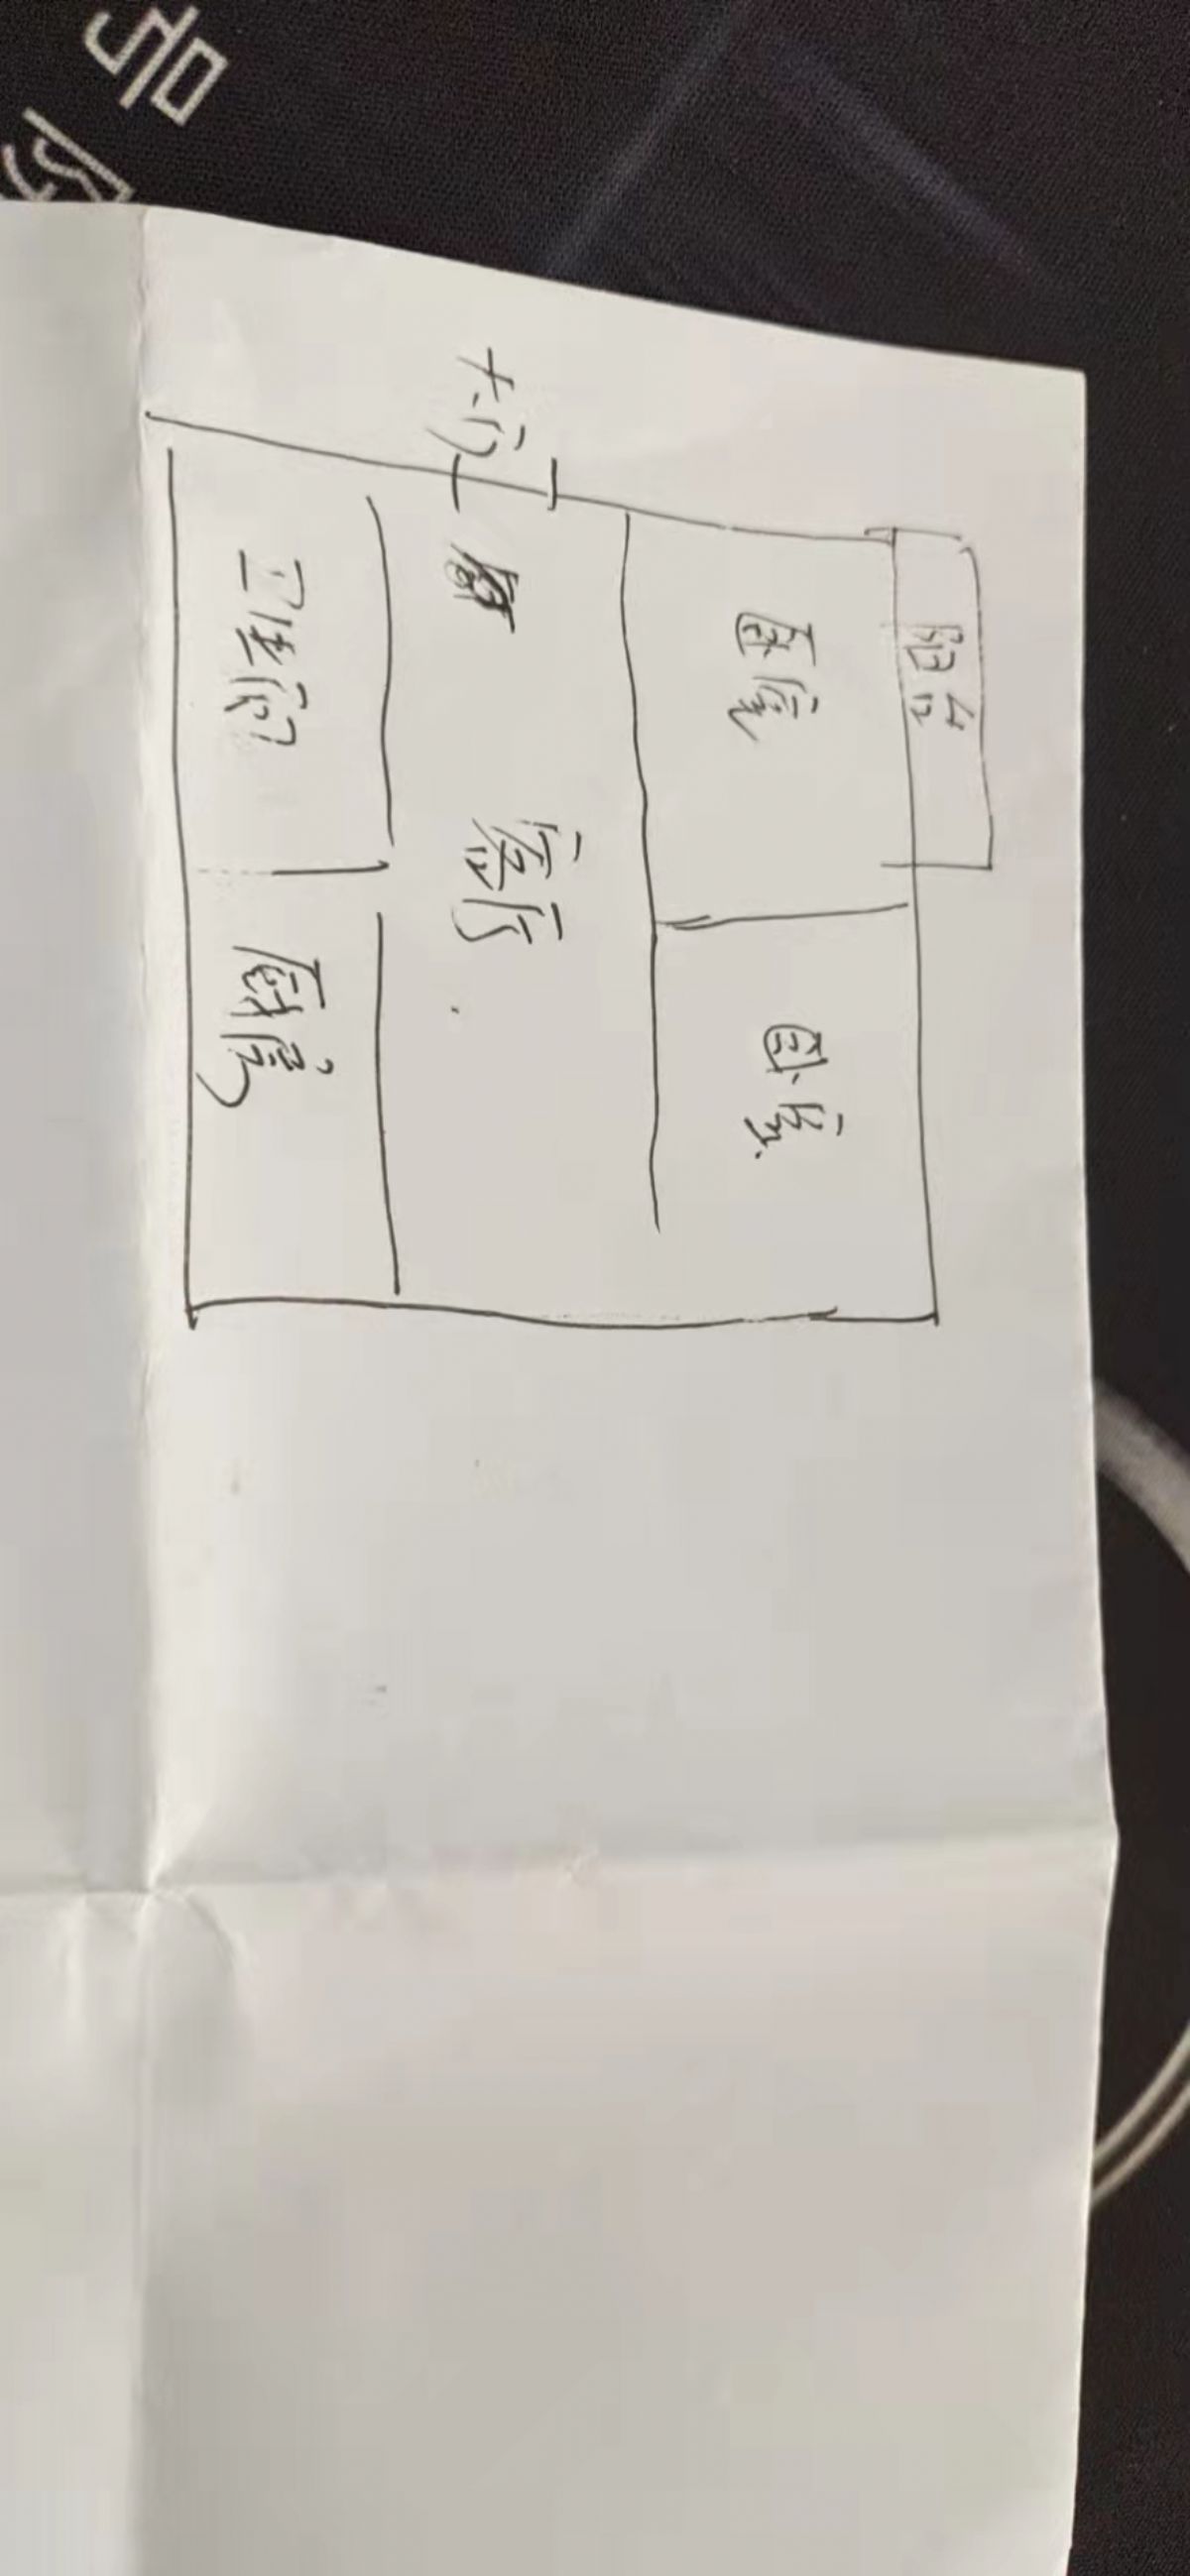 阳台
卧室
卧室
大门
客厅
卫生间
厨房